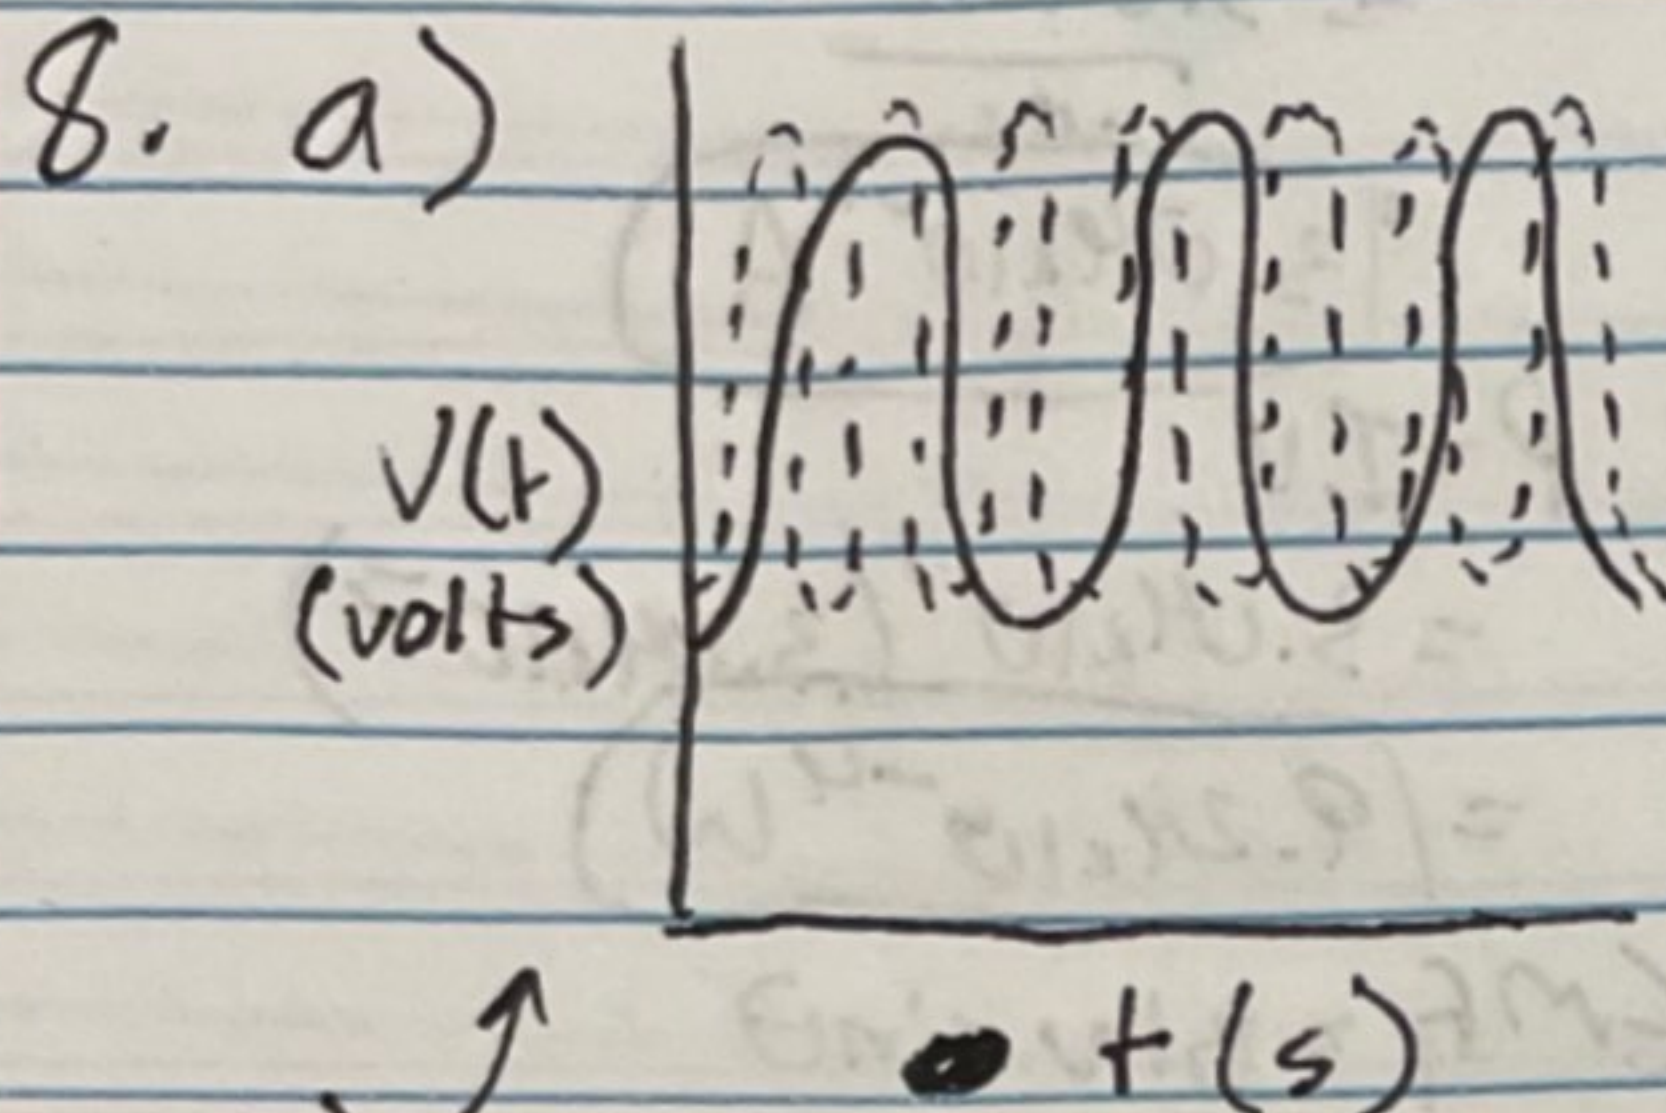 8. a)
V(t)
(volts)
t (s)